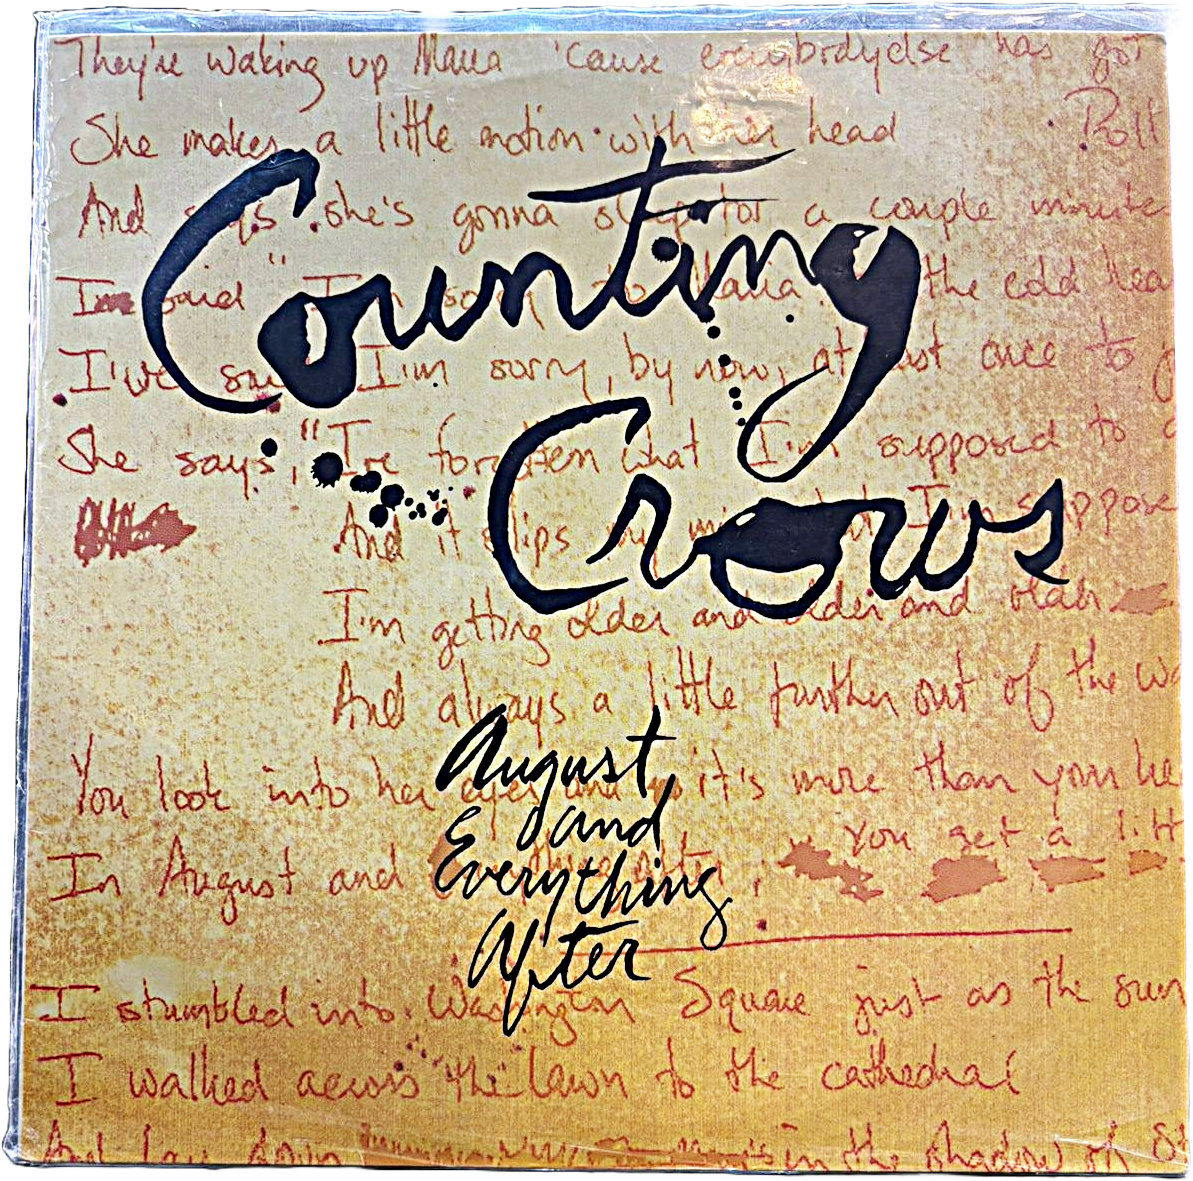 They're waking up Maria 'cause everybody else has got
She makes a little motion with her head
Roll
And says she's gonna sleep for a couple minute
I said "I'm sorry to Maria the cold hea
I've said I'm sorry, by now, at least once to
She says, "I've forgotten what I'm supposed to
And it slips my mind I'm suppose
I'm getting older and older and older
And always a little further out of the wa
You look into her eyes and it's more than your he
You get a litt
In August and
I stumbled into Washington Square just as the sun
I walked across the lawn to the cathedral
And lay down in the shadow of St
Counting
Crows
August
and
Everything
After